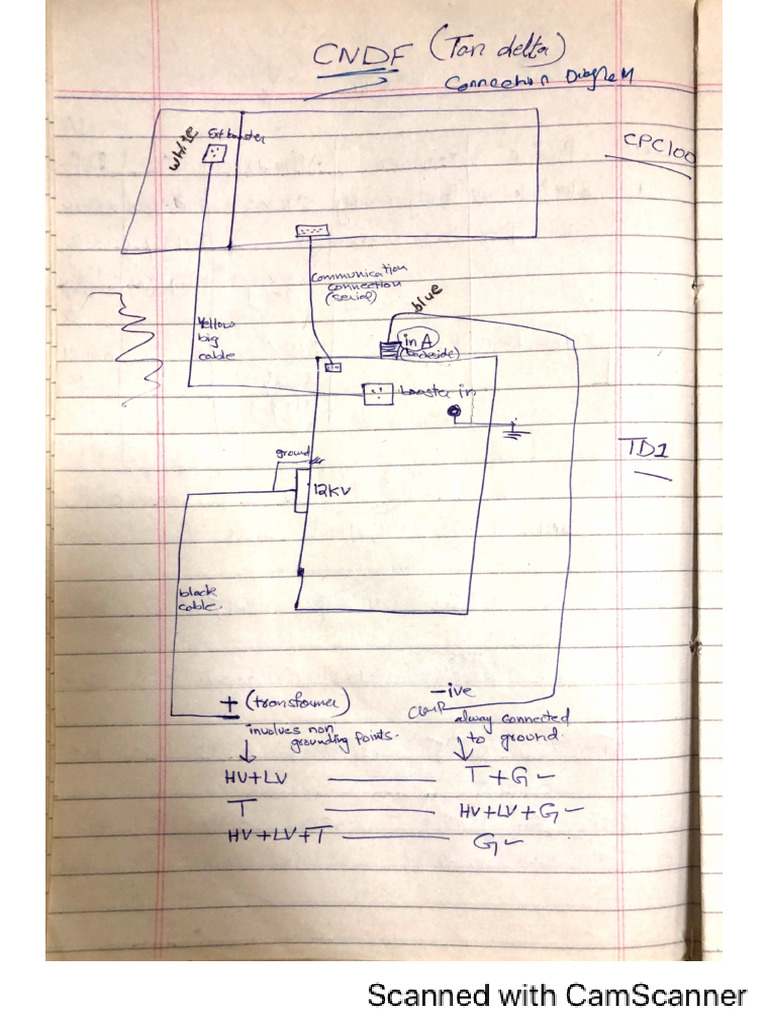 CNDF (Tan delta)
Connection Diagram
white
Ext booster
CPC100
Communication
connection
(serial)
blue
Yellow
big
cable
in A
(backside)
booster in
ground
12KV
TD1
black
cable
+ (transformer)
-ive
clamp
always connected
to ground.
involves non
grounding points.
HV+LV T+G
T HV+LV+G
HV+LV+T G
Scanned with CamScanner